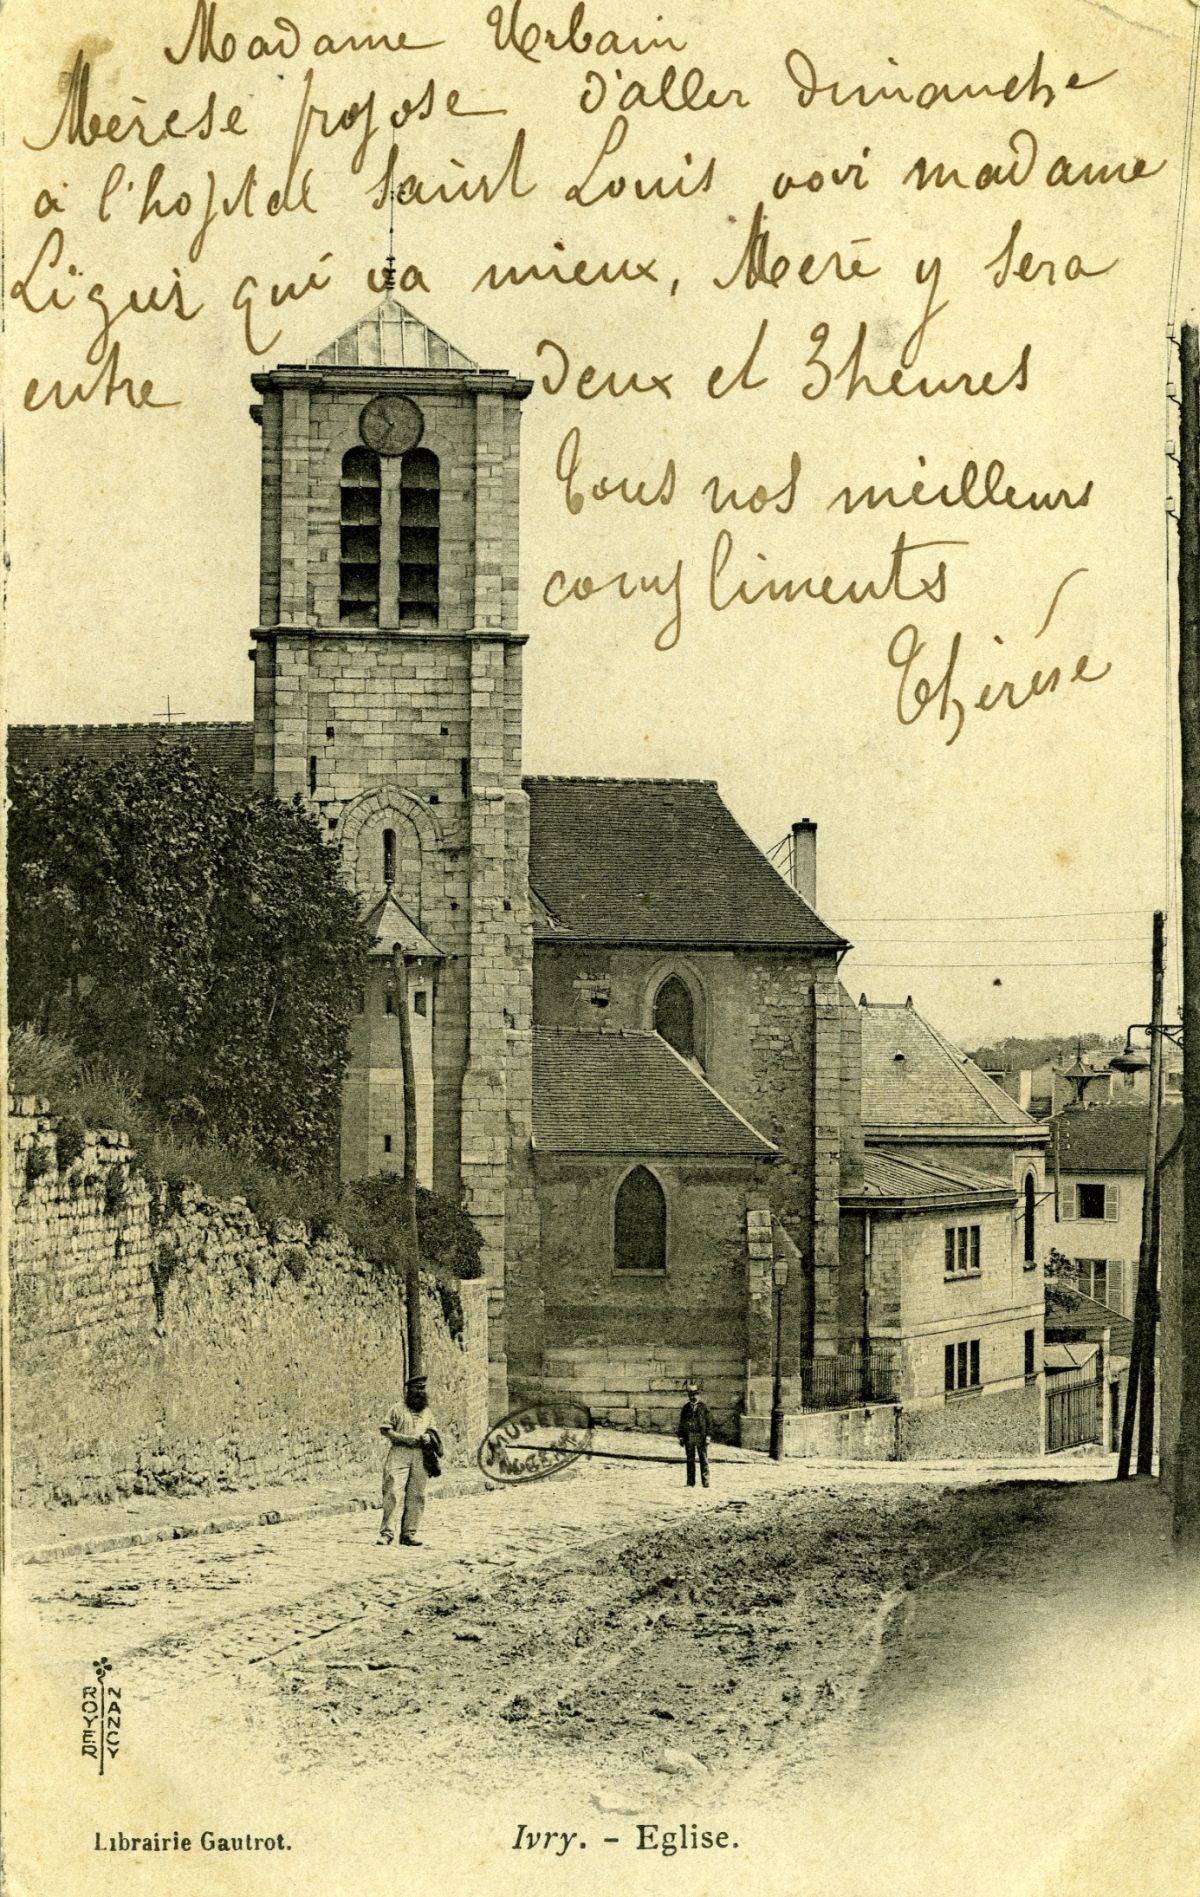 Madame Urbain
Mérese propose d'aller dimanche
à l'hopital Saint Louis voir madame
qui va mieux, Meré y sera
entre deux et 3 heures
Tous nos meilleurs
compliments
Thérèse
MUSÉE
ROYER
NANCY
Librairie Gautrot.
Ivry. - Eglise.